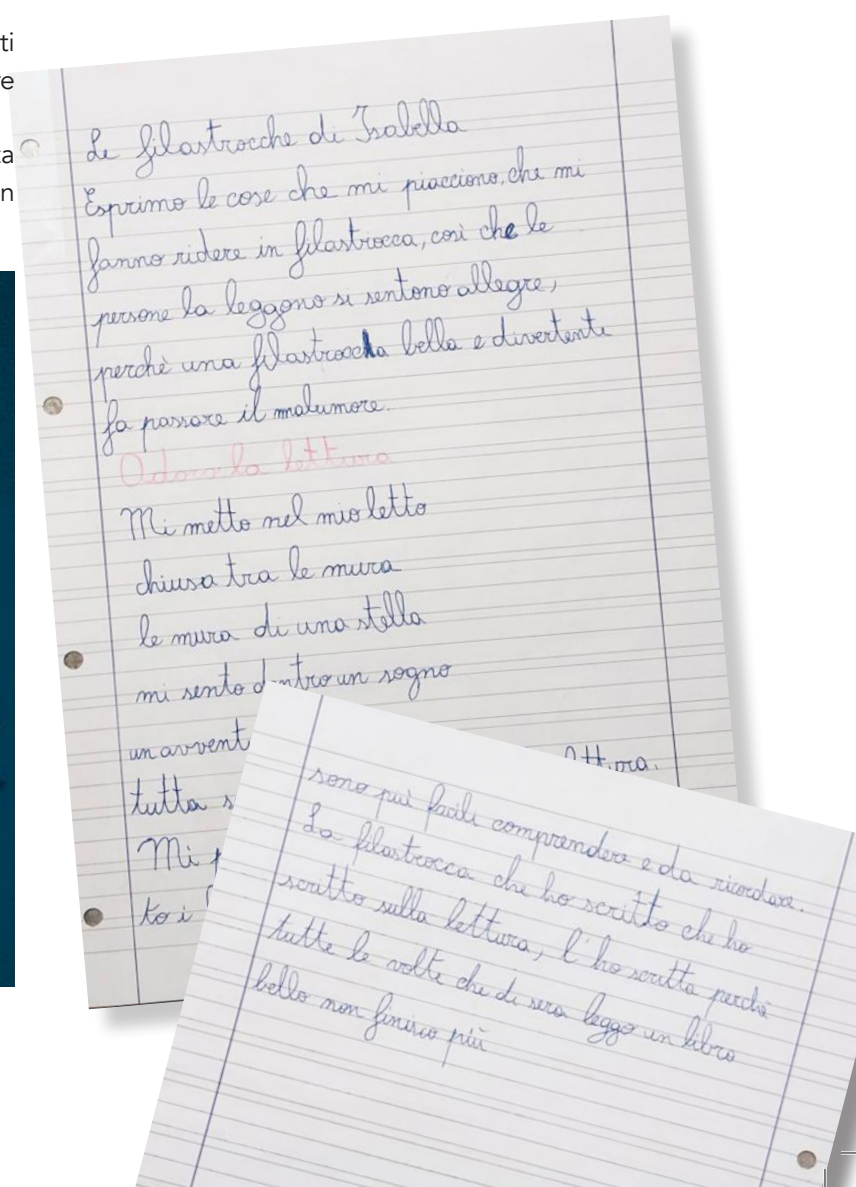 ti
e
a
n
Le filastrocche di Isabella
Esprimo le cose che mi piacciono, che mi
fanno ridere in filastrocca, così che le
persone la leggono si sentono allegre,
perchè una filastroccha bella e divertente
fa passare il malumore.
Adoro la lettura
Mi metto nel mio letto
chiusa tra le mura
le mura di una stella
mi sento dentro un sogno
un avvent
tutta s
Mi
to i
sono più facili comprendere e da ricordare.
La filastrocca che ho scritto che ho
scritto sulla lettura, l'ho scritta perchè
tutte le volte che di sera leggo un libro
bello non finisco più